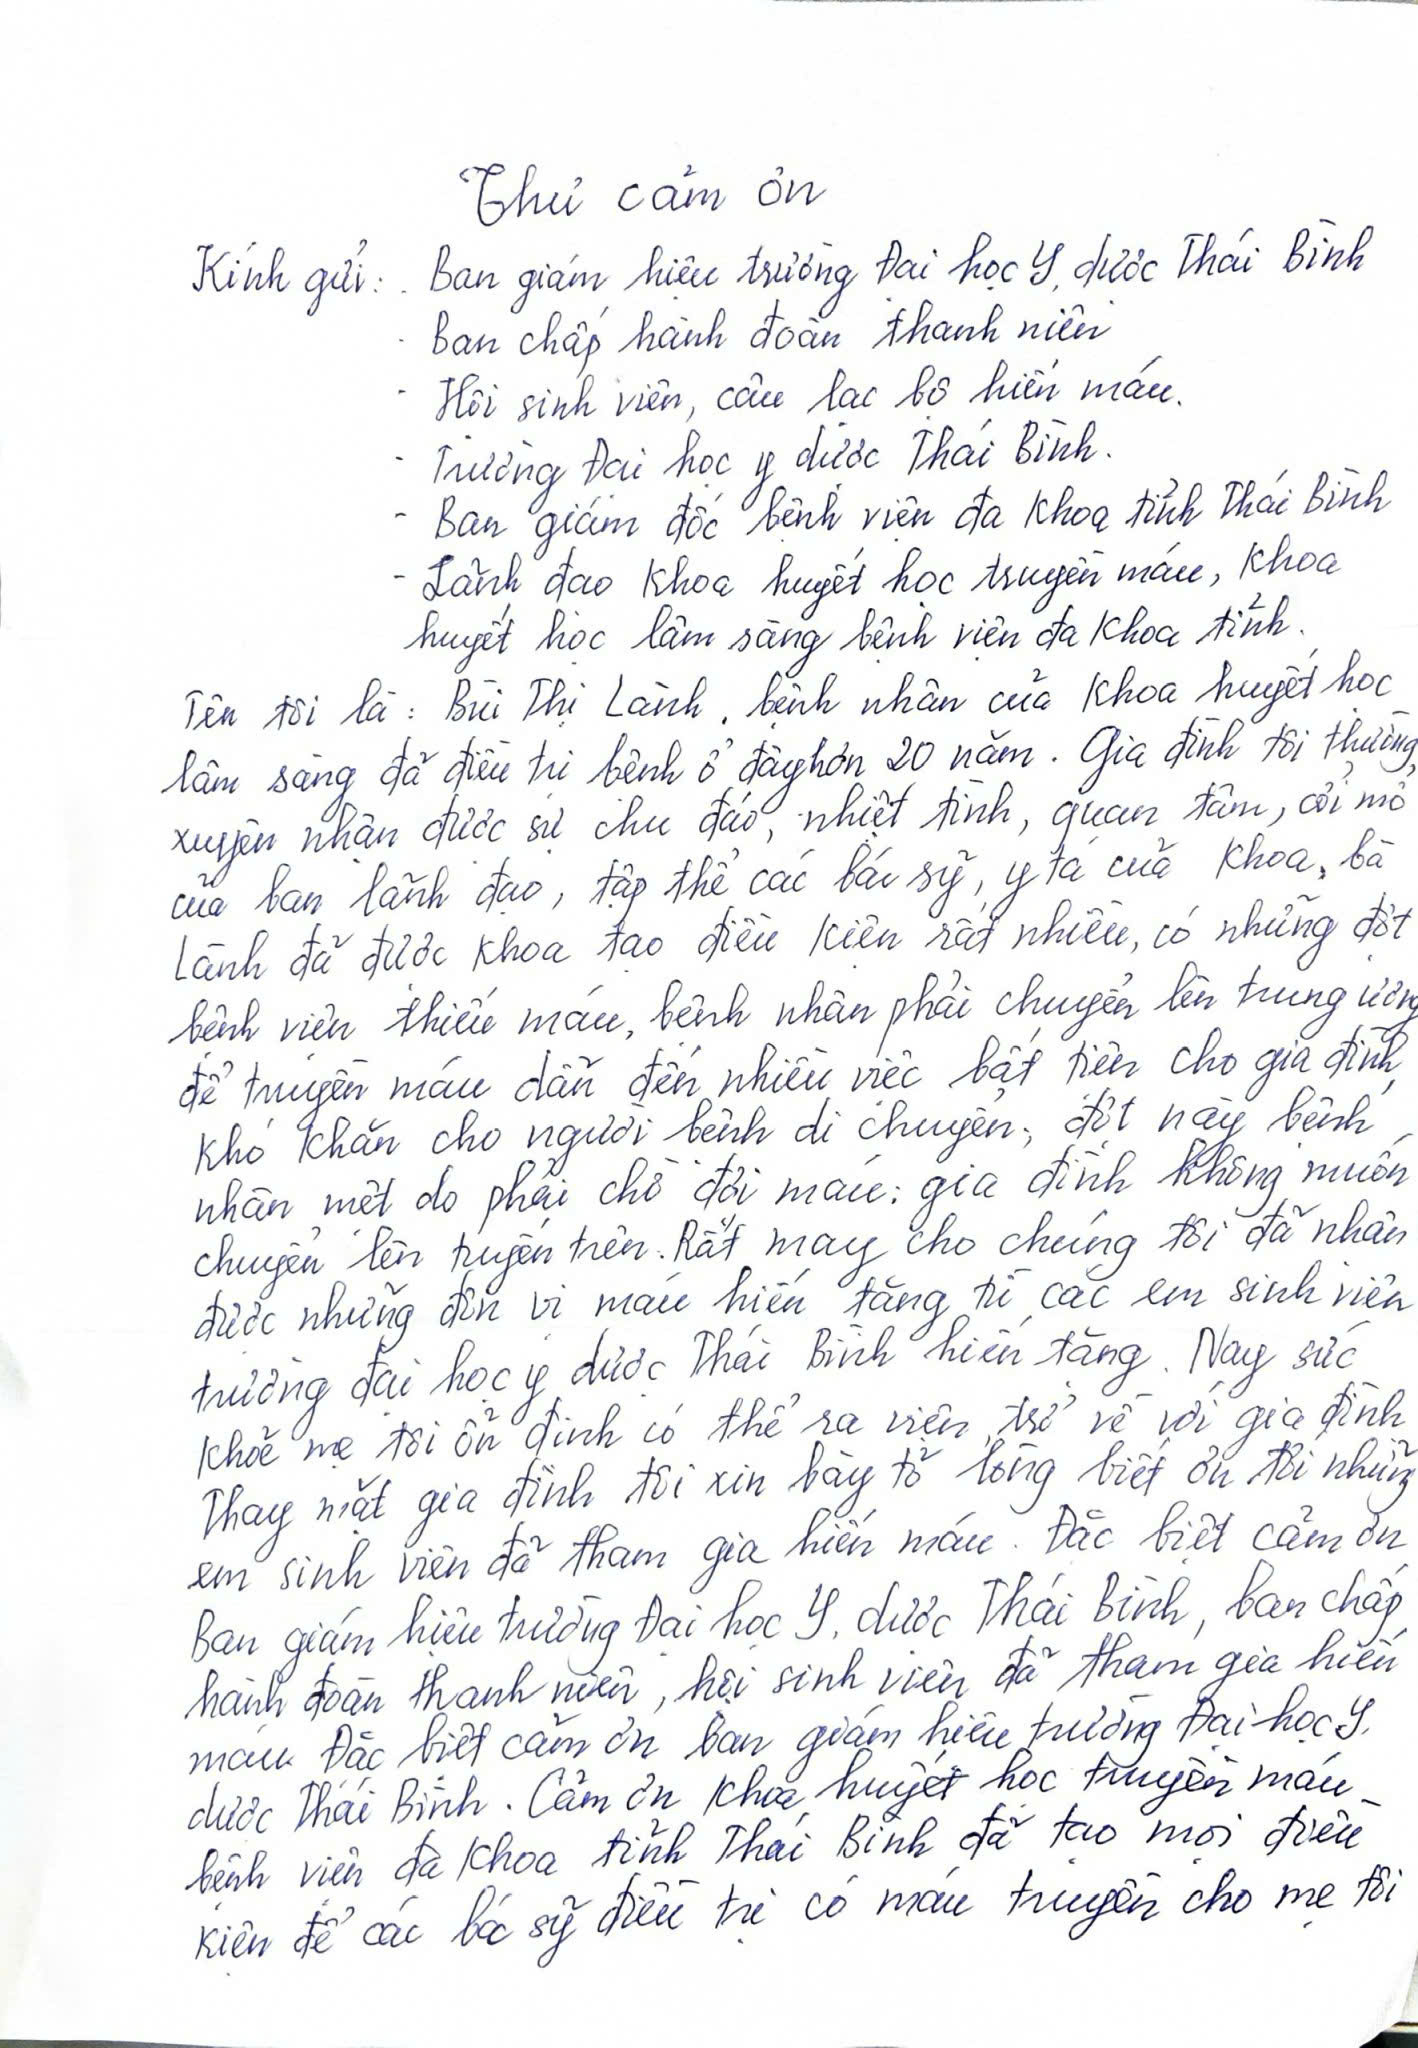 Thư cảm ơn
Kính gửi: - Ban giám hiệu trường Đại học Y, dược Thái Bình
- Ban chấp hành đoàn thanh niên
- Hội sinh viên, câu lạc bộ hiến máu.
- Trường Đại học y dược Thái Bình.
- Ban giám đốc bệnh viện đa khoa tỉnh Thái Bình
- Lãnh đạo khoa huyết học truyền máu, khoa
huyết học lâm sàng bệnh viện đa khoa tỉnh.
Tên tôi là: Bùi Thị Lành, bệnh nhân của khoa huyết học
lâm sàng đã điều trị bệnh ở đây hơn 20 năm. Gia đình tôi thường
xuyên nhận được sự chu đáo, nhiệt tình, quan tâm, cởi mở
của ban lãnh đạo, tập thể các bác sỹ, y tá của khoa, bà
Lành đã được khoa tạo điều kiện rất nhiều, có những đợt
bệnh viện thiếu máu, bệnh nhân phải chuyển lên trung ương
để truyền máu dẫn đến nhiều việc bất tiện cho gia đình,
khó khăn cho người bệnh di chuyển, đợt này bệnh
nhân mệt do phải chờ đợi máu; gia đình không muốn
chuyển lên tuyến trên. Rất may cho chúng tôi đã nhận
được những đơn vị máu hiến tặng từ các em sinh viên
trường đại học y dược Thái Bình hiến tặng. Nay sức
khỏe mẹ tôi ổn định có thể ra viện, trở về với gia đình
Thay mặt gia đình tôi xin bày tỏ lòng biết ơn tới những
em sinh viên đã tham gia hiến máu. Đặc biệt cảm ơn
Ban giám hiệu trường Đại học Y, dược Thái Bình, ban chấp
hành đoàn thanh niên, hội sinh viên đã tham gia hiến
máu. Đặc biệt cảm ơn ban giám hiệu trường Đại học Y,
dược Thái Bình. Cảm ơn khoa huyết học truyền máu
bệnh viện đa khoa tỉnh Thái Bình đã tạo mọi điều
kiện để các bác sỹ điều trị có máu truyền cho mẹ tôi